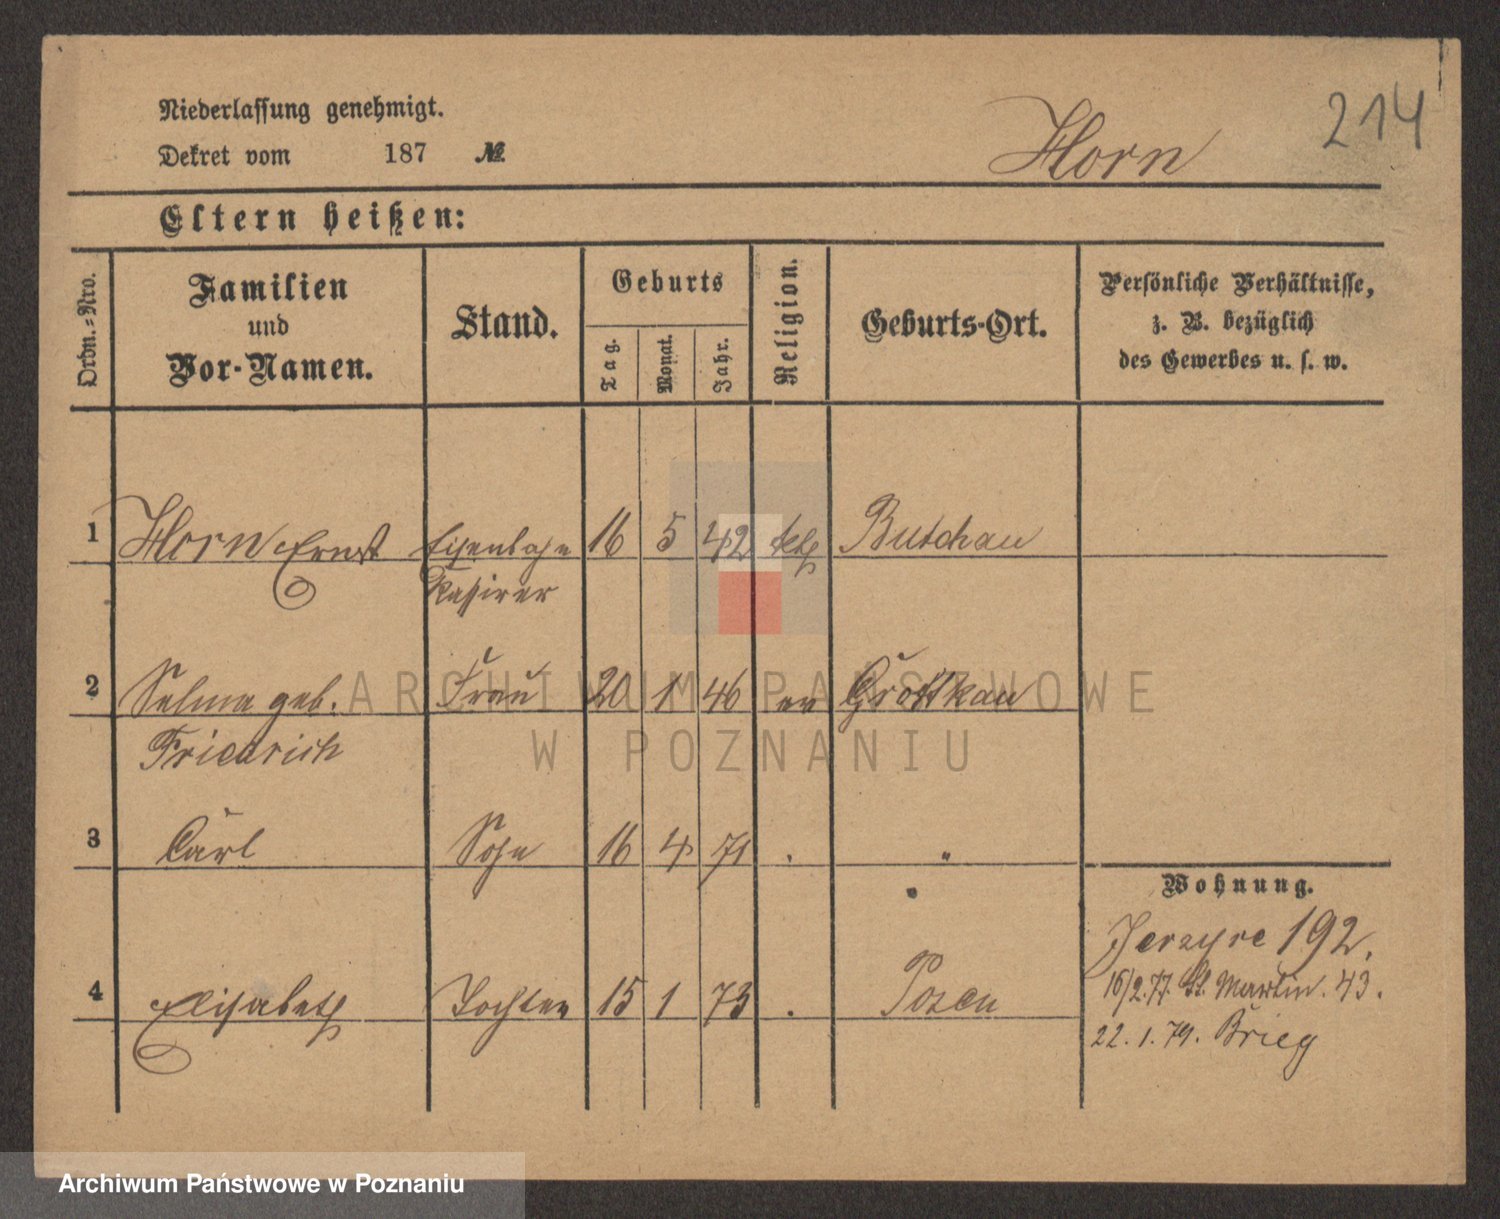 214
Niederlassung genehmigt.
Dekret vom 187 №
Horn
Eltern heißen:
Ordn.-Nro.
Familien und Vor-Namen.
Stand.
Geburts
Tag.
Monat.
Jahr.
Religion.
Geburts-Ort.
Persönliche Verhältnisse,
z. B. bezüglich
des Gewerbes u. s. w.
1 Horn Ernst Eisenbahn 16 5 42 kth Butschau
Kassirer
2 Selma geb. Frau 20 1 46 ev Grottkau
Friedrich
3 Carl Sohn 16 4 71 . "
Wohnung.
Jerzyce 192.
16/2.77. St. Martin. 43.
4 Elisabeth Tochter 15 1 73 . Posen
22. 1. 79. Brieg
ARCHIWUM PAŃSTWOWE
W POZNANIU
Archiwum Państwowe w Poznaniu